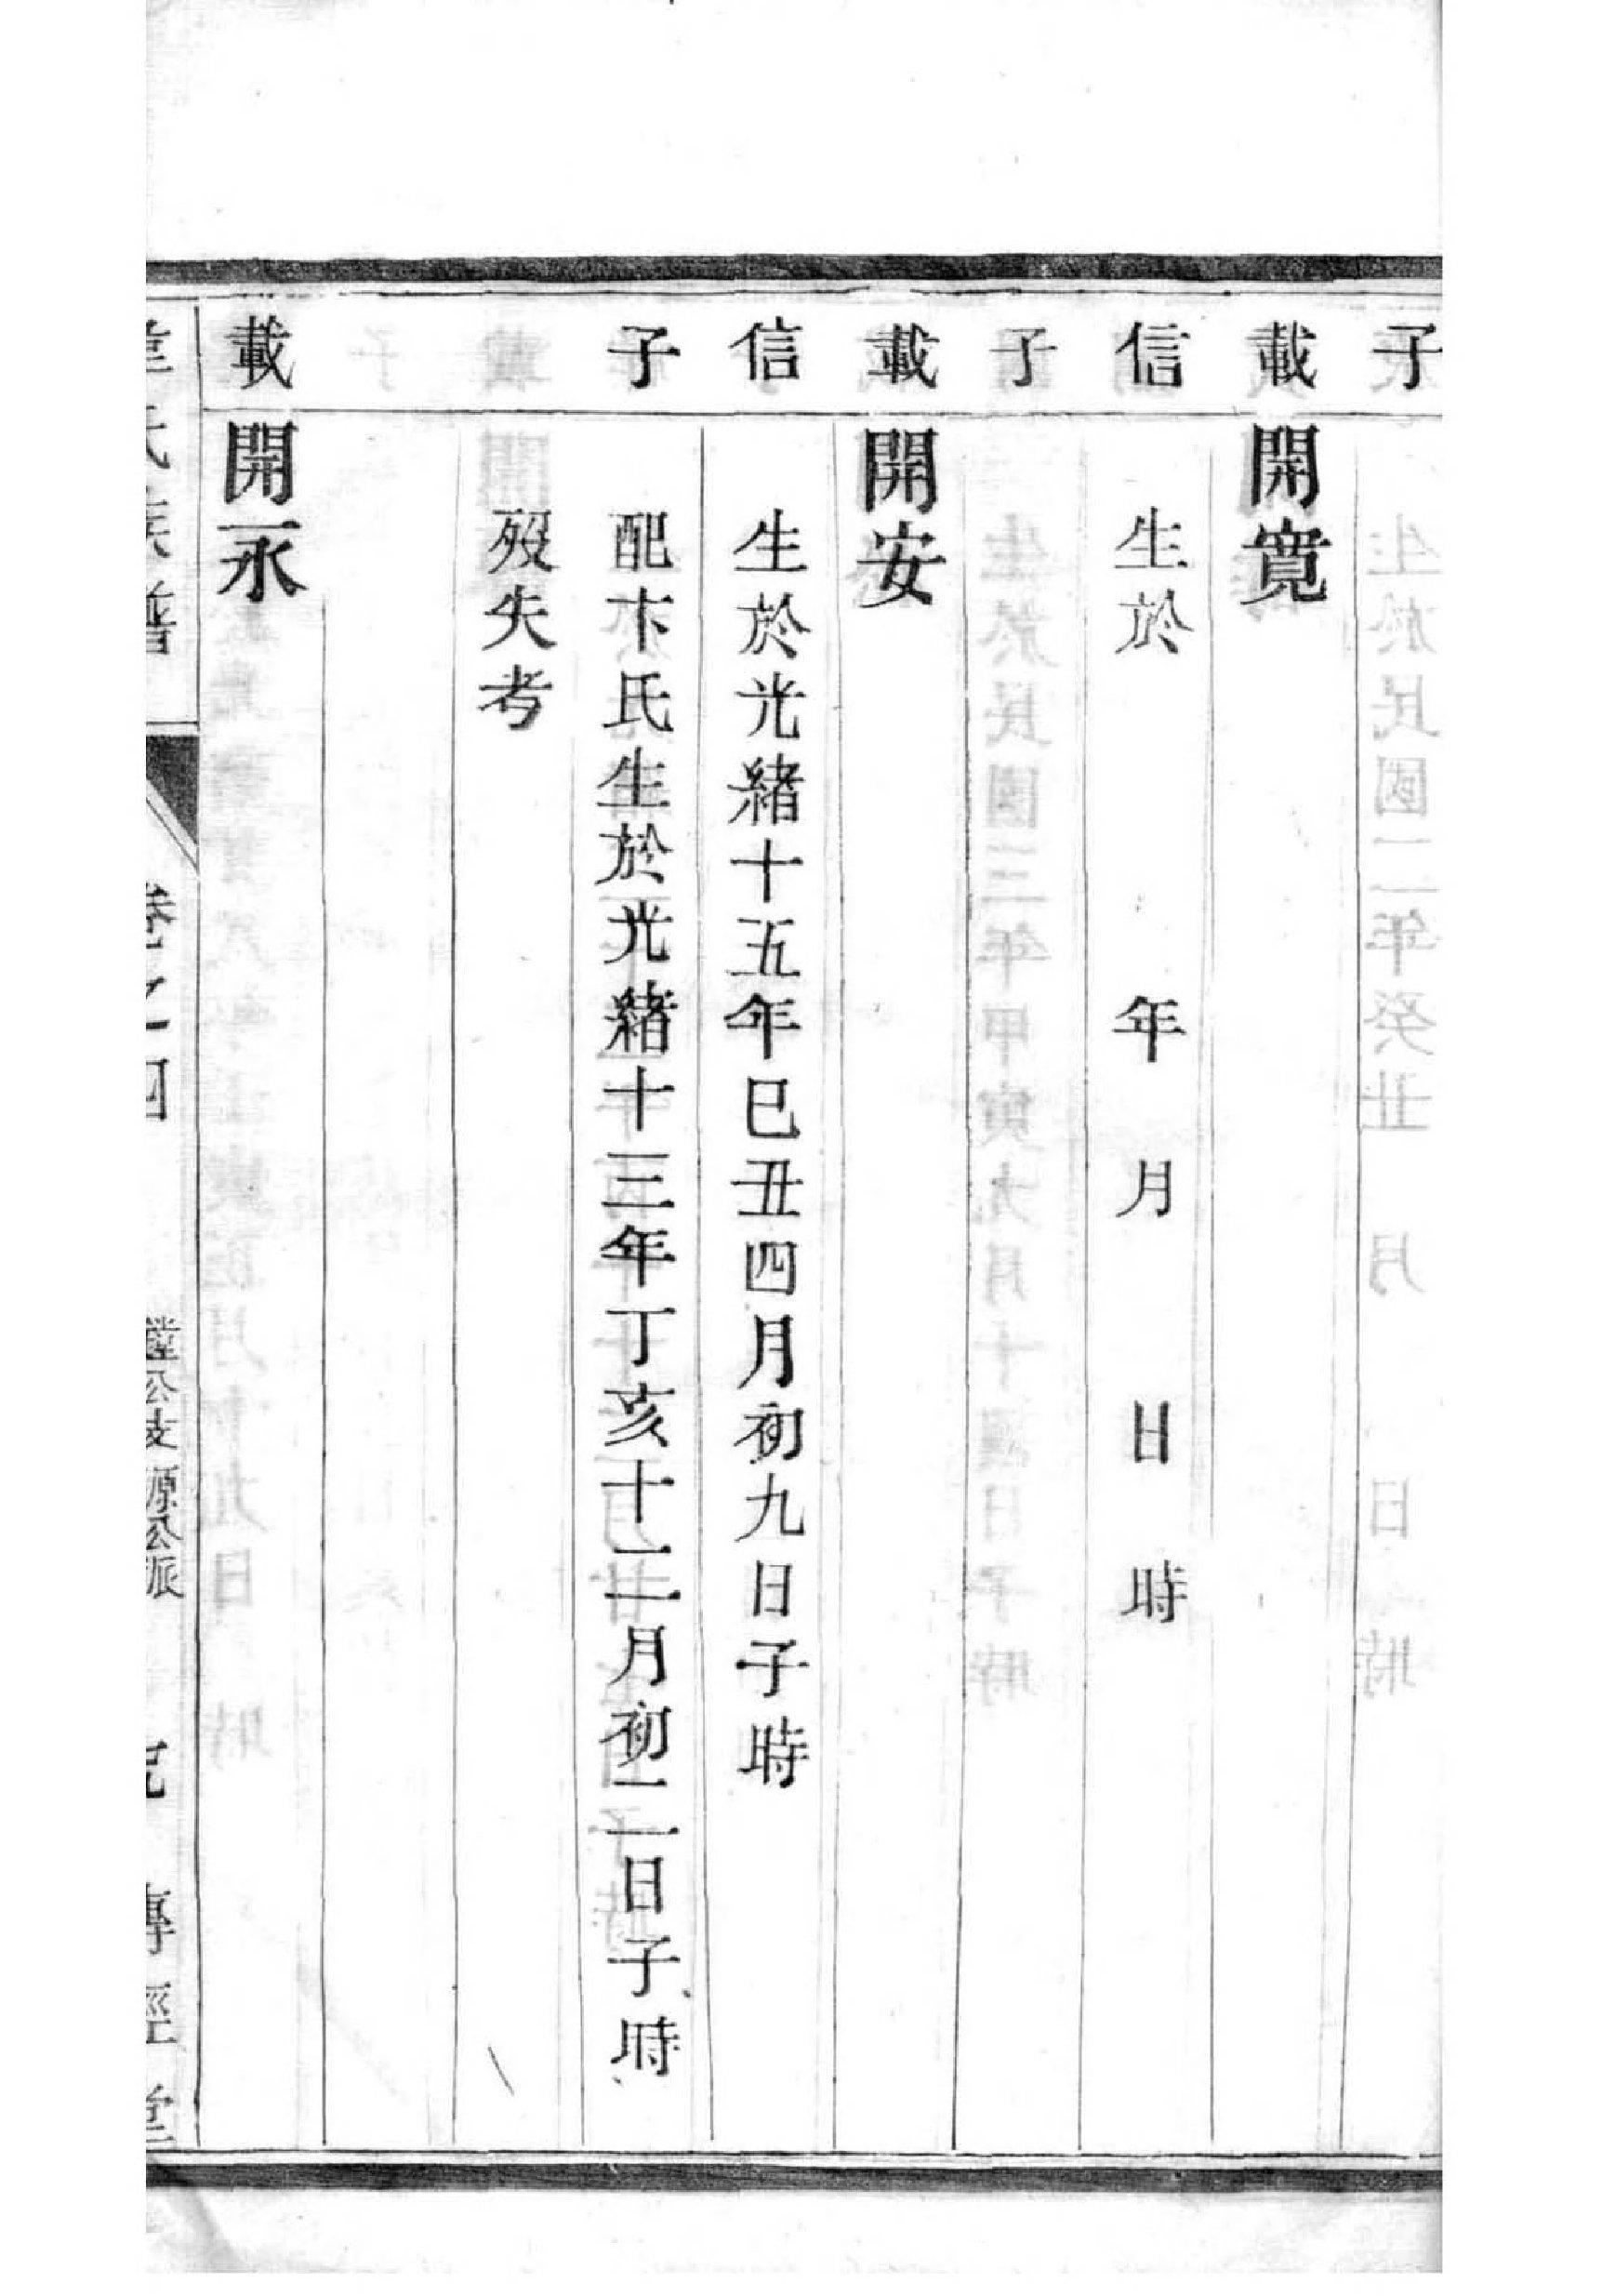 子
載 開寬
信 生於 年 月 日 時
子
載 開安
信 生於光緒十五年巳丑四月初九日子時
子 配卞氏生於光緒十三年丁亥十二月初二日子時
歿失考
載 開永
氏族譜 卷之四 公支源公派 傳經堂